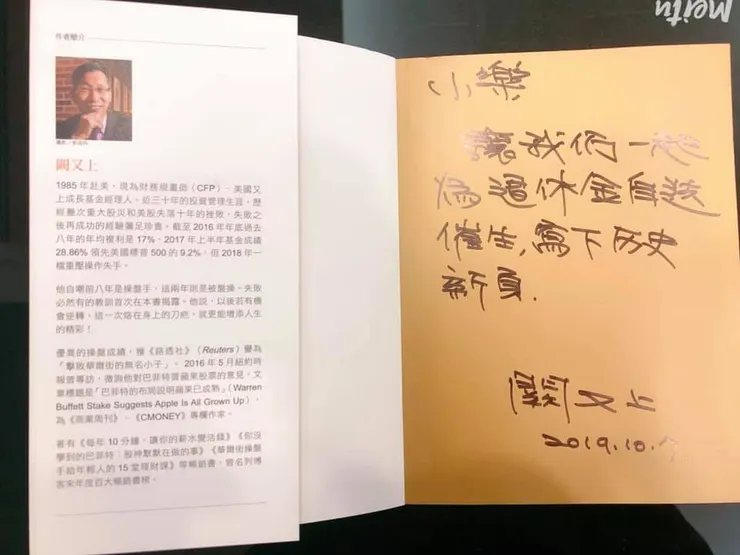 作者簡介
攝影／
闕又上
1985 年赴美，現為財務規畫師（CFP）、美國又
上成長基金經理人。近三十年的投資管理生涯，歷
經幾次重大股災和美股失落十年的挫敗，失敗之
後再成功的經驗彌足珍貴。截至 2016 年年底過去
八年的年均複利是 17%，2017 年上半年基金成績
28.86% 領先美國標普 500 的 9.2%，但 2018 年一
檔重壓操作失手。
他自嘲前八年是操盤手，這兩年則是被盤操。失敗
必然有的教訓首次在本書揭露。他說，以後若有機
會逆轉，這一次烙在身上的刀疤，就更能增添人生
的精彩！
優異的操盤成績，獲《路透社》（Reuters）譽為
「擊敗華爾街的無名小子」。2016 年 5 月紐約時
報曾專訪，徵詢他對巴菲特買蘋果股票的意見，文
章標題是「巴菲特的布局說明蘋果已成熟」（Warren
Buffett Stake Suggests Apple Is All Grown Up），
為《商業周刊》、《CMONEY》專欄作家。
著有《每年 10 分鐘，讓你的薪水變活錢》《你沒
學到的巴菲特：股神默默在做的事》《華爾街操盤
手給年輕人的 15 堂理財課》等暢銷書，皆名列博
客來年度百大暢銷書榜。
Meitu
小樂
讓我們一起
為退休金自選
催生,寫下历史
新頁.
闕又上
2019.10.